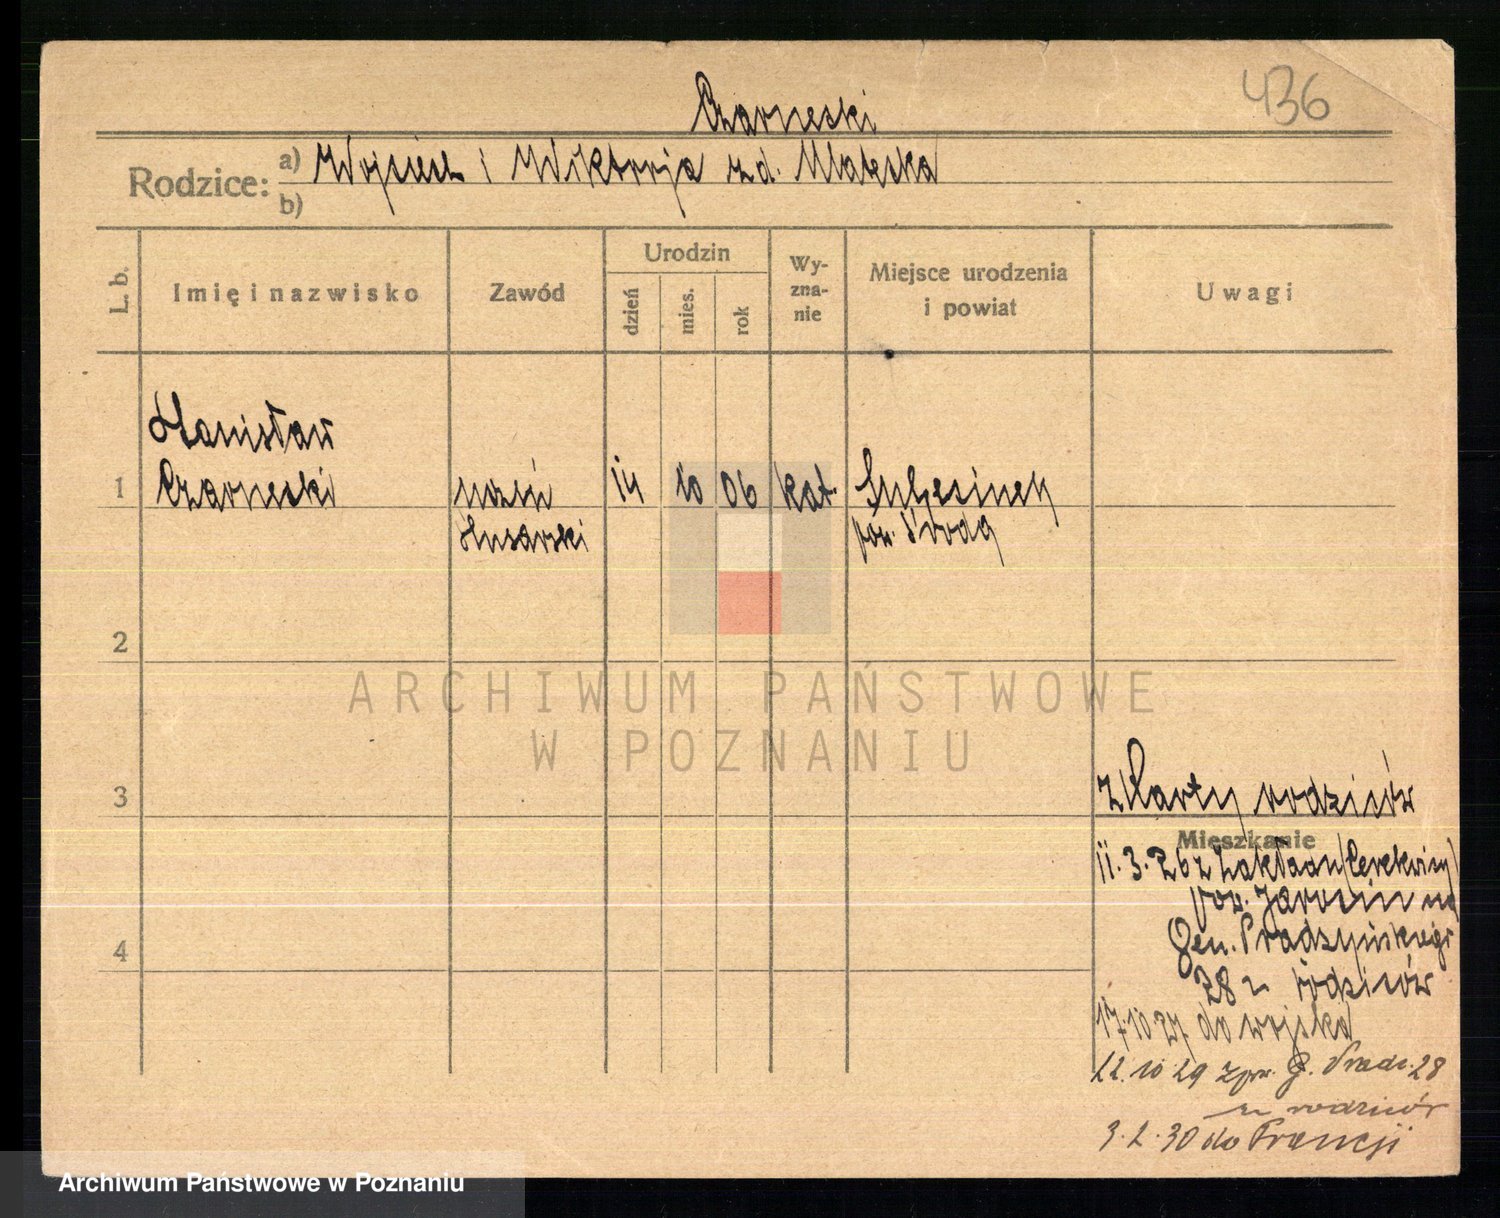 436
Czarneski
Rodzice: a) Wojciech i Wiktorja z d. Mateska
b)
L. b. Imię i nazwisko Zawód Urodzin dzień mies. rok Wyznanie Miejsce urodzenia i powiat Uwagi
Stanisław
1 Czarneski uczeń 14 10 06 kat.
ślusarski pow. Środa
2
ARCHIWUM PAŃSTWOWE
W POZNANIU
z Karty rodziców
3
Mieszkanie
11.3.26 z Zakładu Cerekwicy
pow. Jarocin na
4 Gen. Prądzyńskiego
28 u rodziców
17.10.27 do wojska
22.10.29 z pow. G. Prądz. 28
u rodziców
3.2.30 do Francji
Archiwum Państwowe w Poznaniu